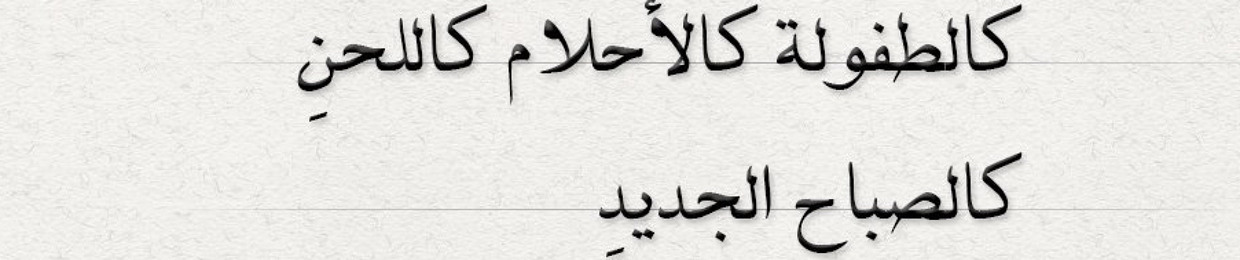 كالطفولة كالأحلام كاللحنِ
كالصباح الجديدِ